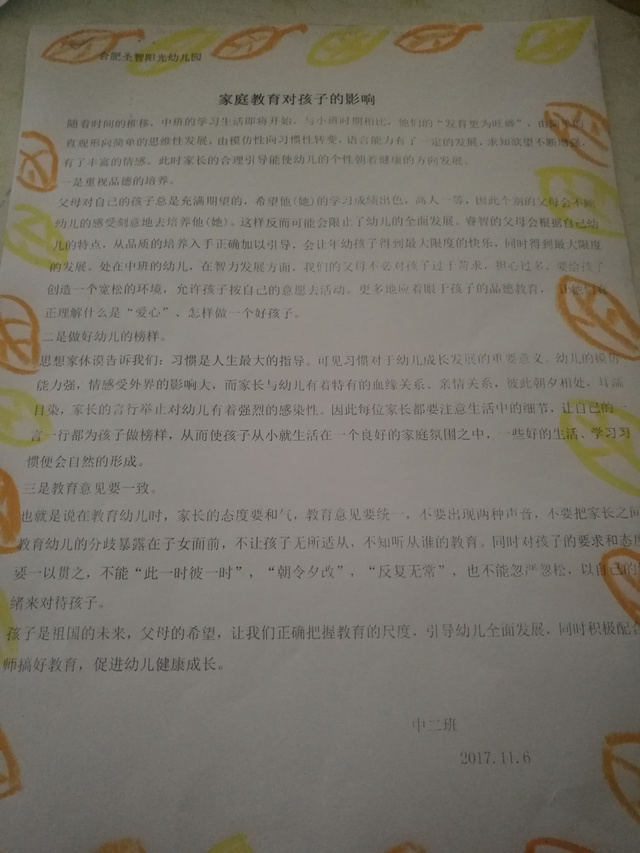 合肥圣智阳光幼儿园
家庭教育对孩子的影响
随着时间的推移，中班的学习生活即将开始，与小班时期相比，他们的“发育更为旺盛”，由简单的
直观形向简单的思维性发展，由模仿性向习惯性转变，语言能力有了一定的发展，求知欲望不断增强，
有了丰富的情感。此时家长的合理引导能使幼儿的个性朝着健康的方向发展。
一是重视品德的培养。
父母对自己的孩子总是充满期望的，希望他(她)的学习成绩出色，高人一等，因此个别的父母会不顾
幼儿的感受刻意地去培养他(她)。这样反而可能会限止了幼儿的全面发展。睿智的父母会根据自己幼
儿的特点，从品质的培养入手正确加以引导，会让年幼孩子得到最大限度的快乐，同时得到最大限度
的发展。处在中班的幼儿，在智力发展方面，我们的父母不必对孩子过于苛求，担心过多，要给孩子
创造一个宽松的环境，允许孩子按自己的意愿去活动。更多地应着眼于孩子的品德教育，让他们真
正理解什么是“爱心”、怎样做一个好孩子。
二是做好幼儿的榜样。
思想家休谟告诉我们：习惯是人生最大的指导。可见习惯对于幼儿成长发展的重要意义。幼儿的模仿
能力强，情感受外界的影响大，而家长与幼儿有着特有的血缘关系、亲情关系，彼此朝夕相处，耳濡
目染，家长的言行举止对幼儿有着强烈的感染性。因此每位家长都要注意生活中的细节，让自己的
言一行都为孩子做榜样，从而使孩子从小就生活在一个良好的家庭氛围之中，一些好的生活、学习习
惯便会自然的形成。
三是教育意见要一致。
也就是说在教育幼儿时，家长的态度要和气，教育意见要统一，不要出现两种声音，不要把家长之间
教育幼儿的分歧暴露在子女面前，不让孩子无所适从，不知听从谁的教育。同时对孩子的要求和态度
要一以贯之，不能“此一时彼一时”，“朝令夕改”，“反复无常”，也不能忽严忽松，以自己的
绪来对待孩子。
孩子是祖国的未来，父母的希望，让我们正确把握教育的尺度，引导幼儿全面发展，同时积极配合
师搞好教育，促进幼儿健康成长。
中二班
2017.11.6